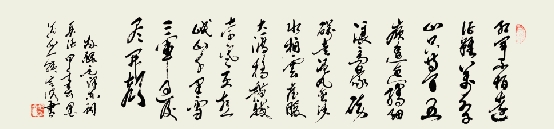 紅軍不怕遠
征難萬水千
山只等閑五
嶺逶迤騰細
浪烏蒙磅
礴走泥丸金沙
水拍雲崖暖
大渡橋橫鐵
索寒更喜
岷山千里雪
三軍過後
盡開顔
錄毛澤東詞
書